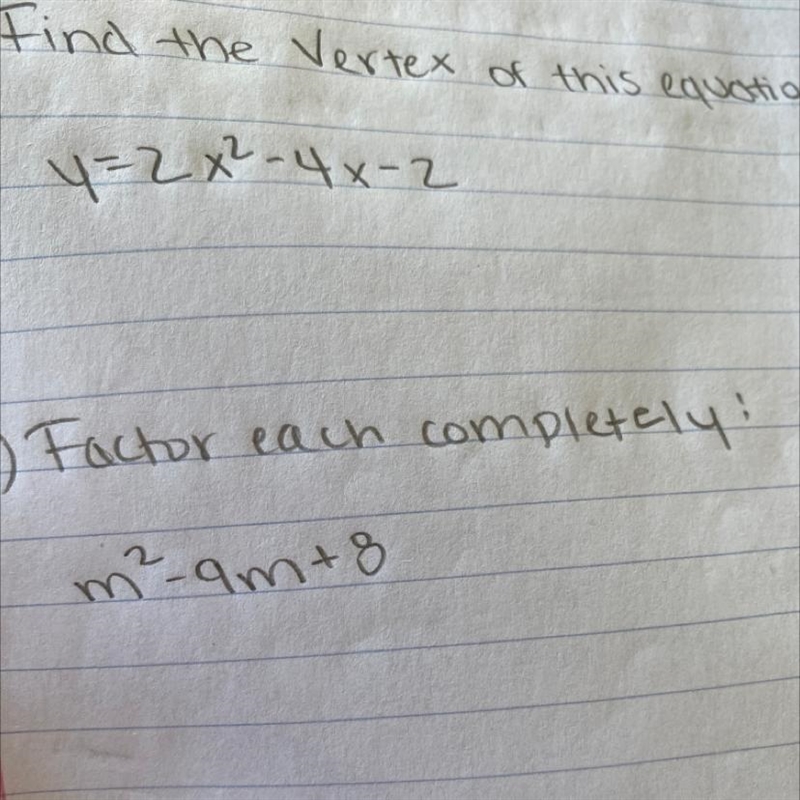 Find the Vertex of this equatio
y=2x²-4x-2
) Factor each completely:
m²-9m+8